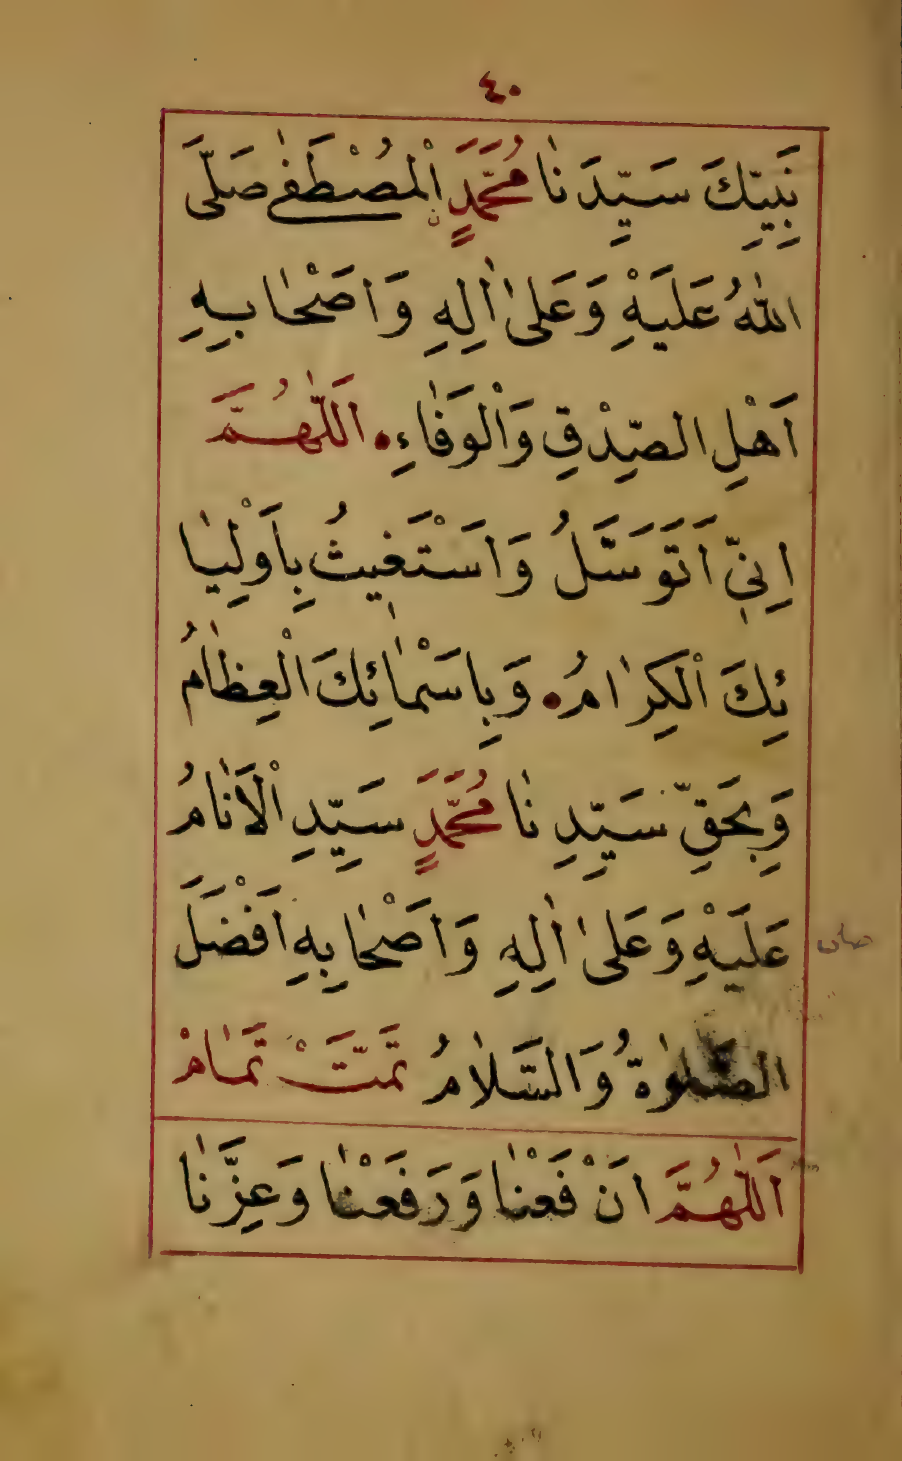 ٤٠
نَبِيِّكَ سَيِّدَنٰا مُحَمَّدٍ الْمُصْطَفٰى صَلَّى
اللهُ عَلَيْهِ وَعَلىٰ اٰلِهِ وَاَصْحٰابِهِ
اَهْلِ الصِّدْقِ وَالْوَفٰاءِ. اَللّٰهُمَّ
اِنِّي اَتَوَسَّلُ وَاَسْتَغيثُ بِاَوْلِيٰا
ئِكَ الْكِرٰامُ. وَبِاَسْمٰائِكَ الْعِظٰامُ
وَبِحَقِّ سَيِّدِنٰا مُحَمَّدٍ سَيِّدِ الْاَنٰامُ
عَلَيْهِ وَعَلىٰ اٰلِهِ وَاَصْحٰابِهِ اَفْضَلَ
الصَّلوٰةُ وَالسَّلٰامُ تَمَّتْ تَمٰامْ
اَللّٰهُمَّ انْفَعْنٰا وَرَفَعْنٰا وَعِزَّنٰا